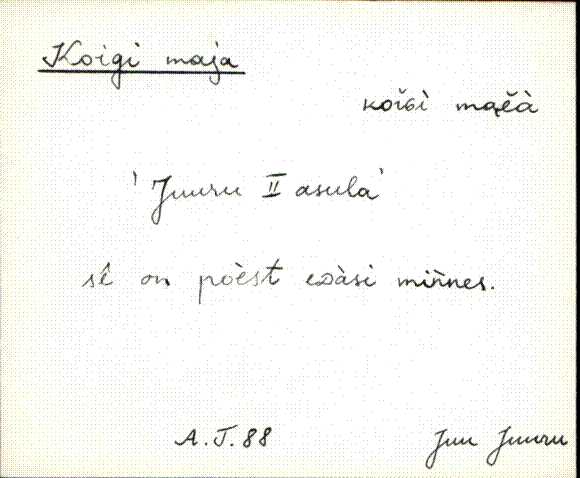 Koigi maja
koĭɢì mae̬ĕà
'Juuru II asula'
sê on pòèst eᴅàsi miǹnes.
A.T.88
Juu Juuru